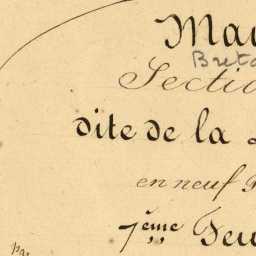 Mau
Breta
Section
dite de la
en neuf
7ème Feu
par